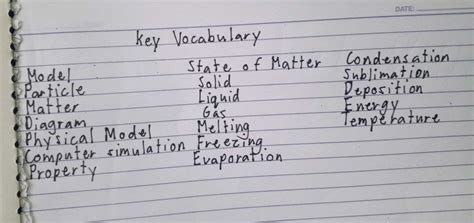 DATE:
Key Vocabulary
Model
Particle
Matter
Diagram
Physical Model
Computer simulation
Property
State of Matter
Solid
Liquid
Gas
Melting
Freezing
Evaporation
Condensation
Sublimation
Deposition
Energy
Temperature